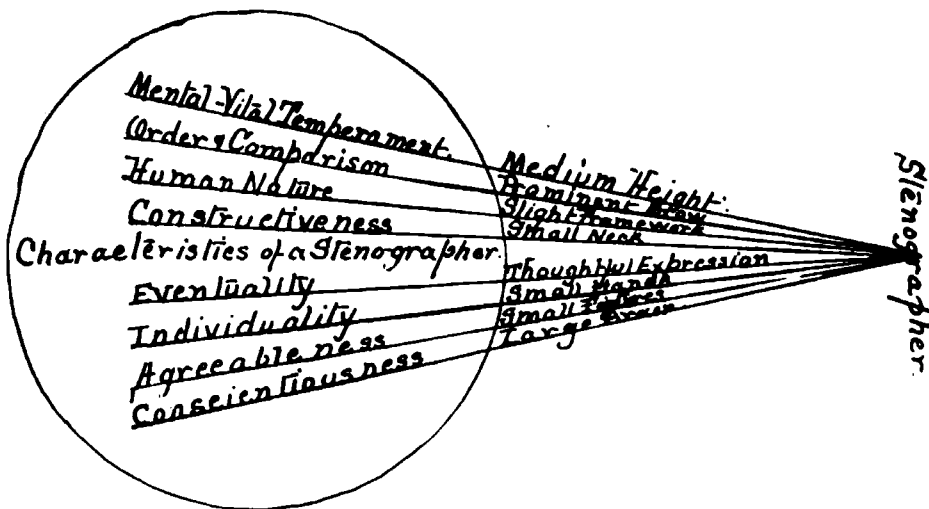 Mental-Vital Temperament.
Order & Comparison
Human Nature
Constructiveness
Characteristics of a Stenographer.
Eventuality
Individuality
Agreeableness
Conscientiousness
Medium Height.
Prominent Brow
Slight Framework
Small Neck
Thoughtful Expression
Small Hands
Small
Large
Stenographer.